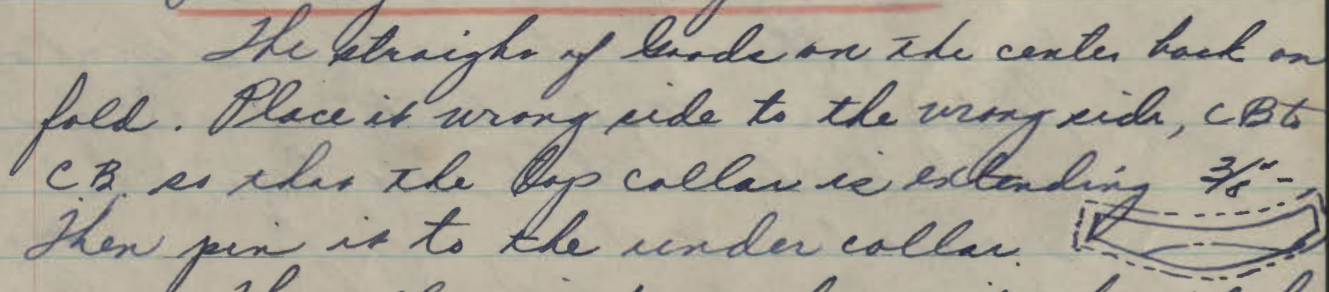 The straight of Goods on the center back on
fold. Place it wrong side to the wrong side, CB to
CB. so that the top collar is extending 3/8" -
Then pin it to the under collar.